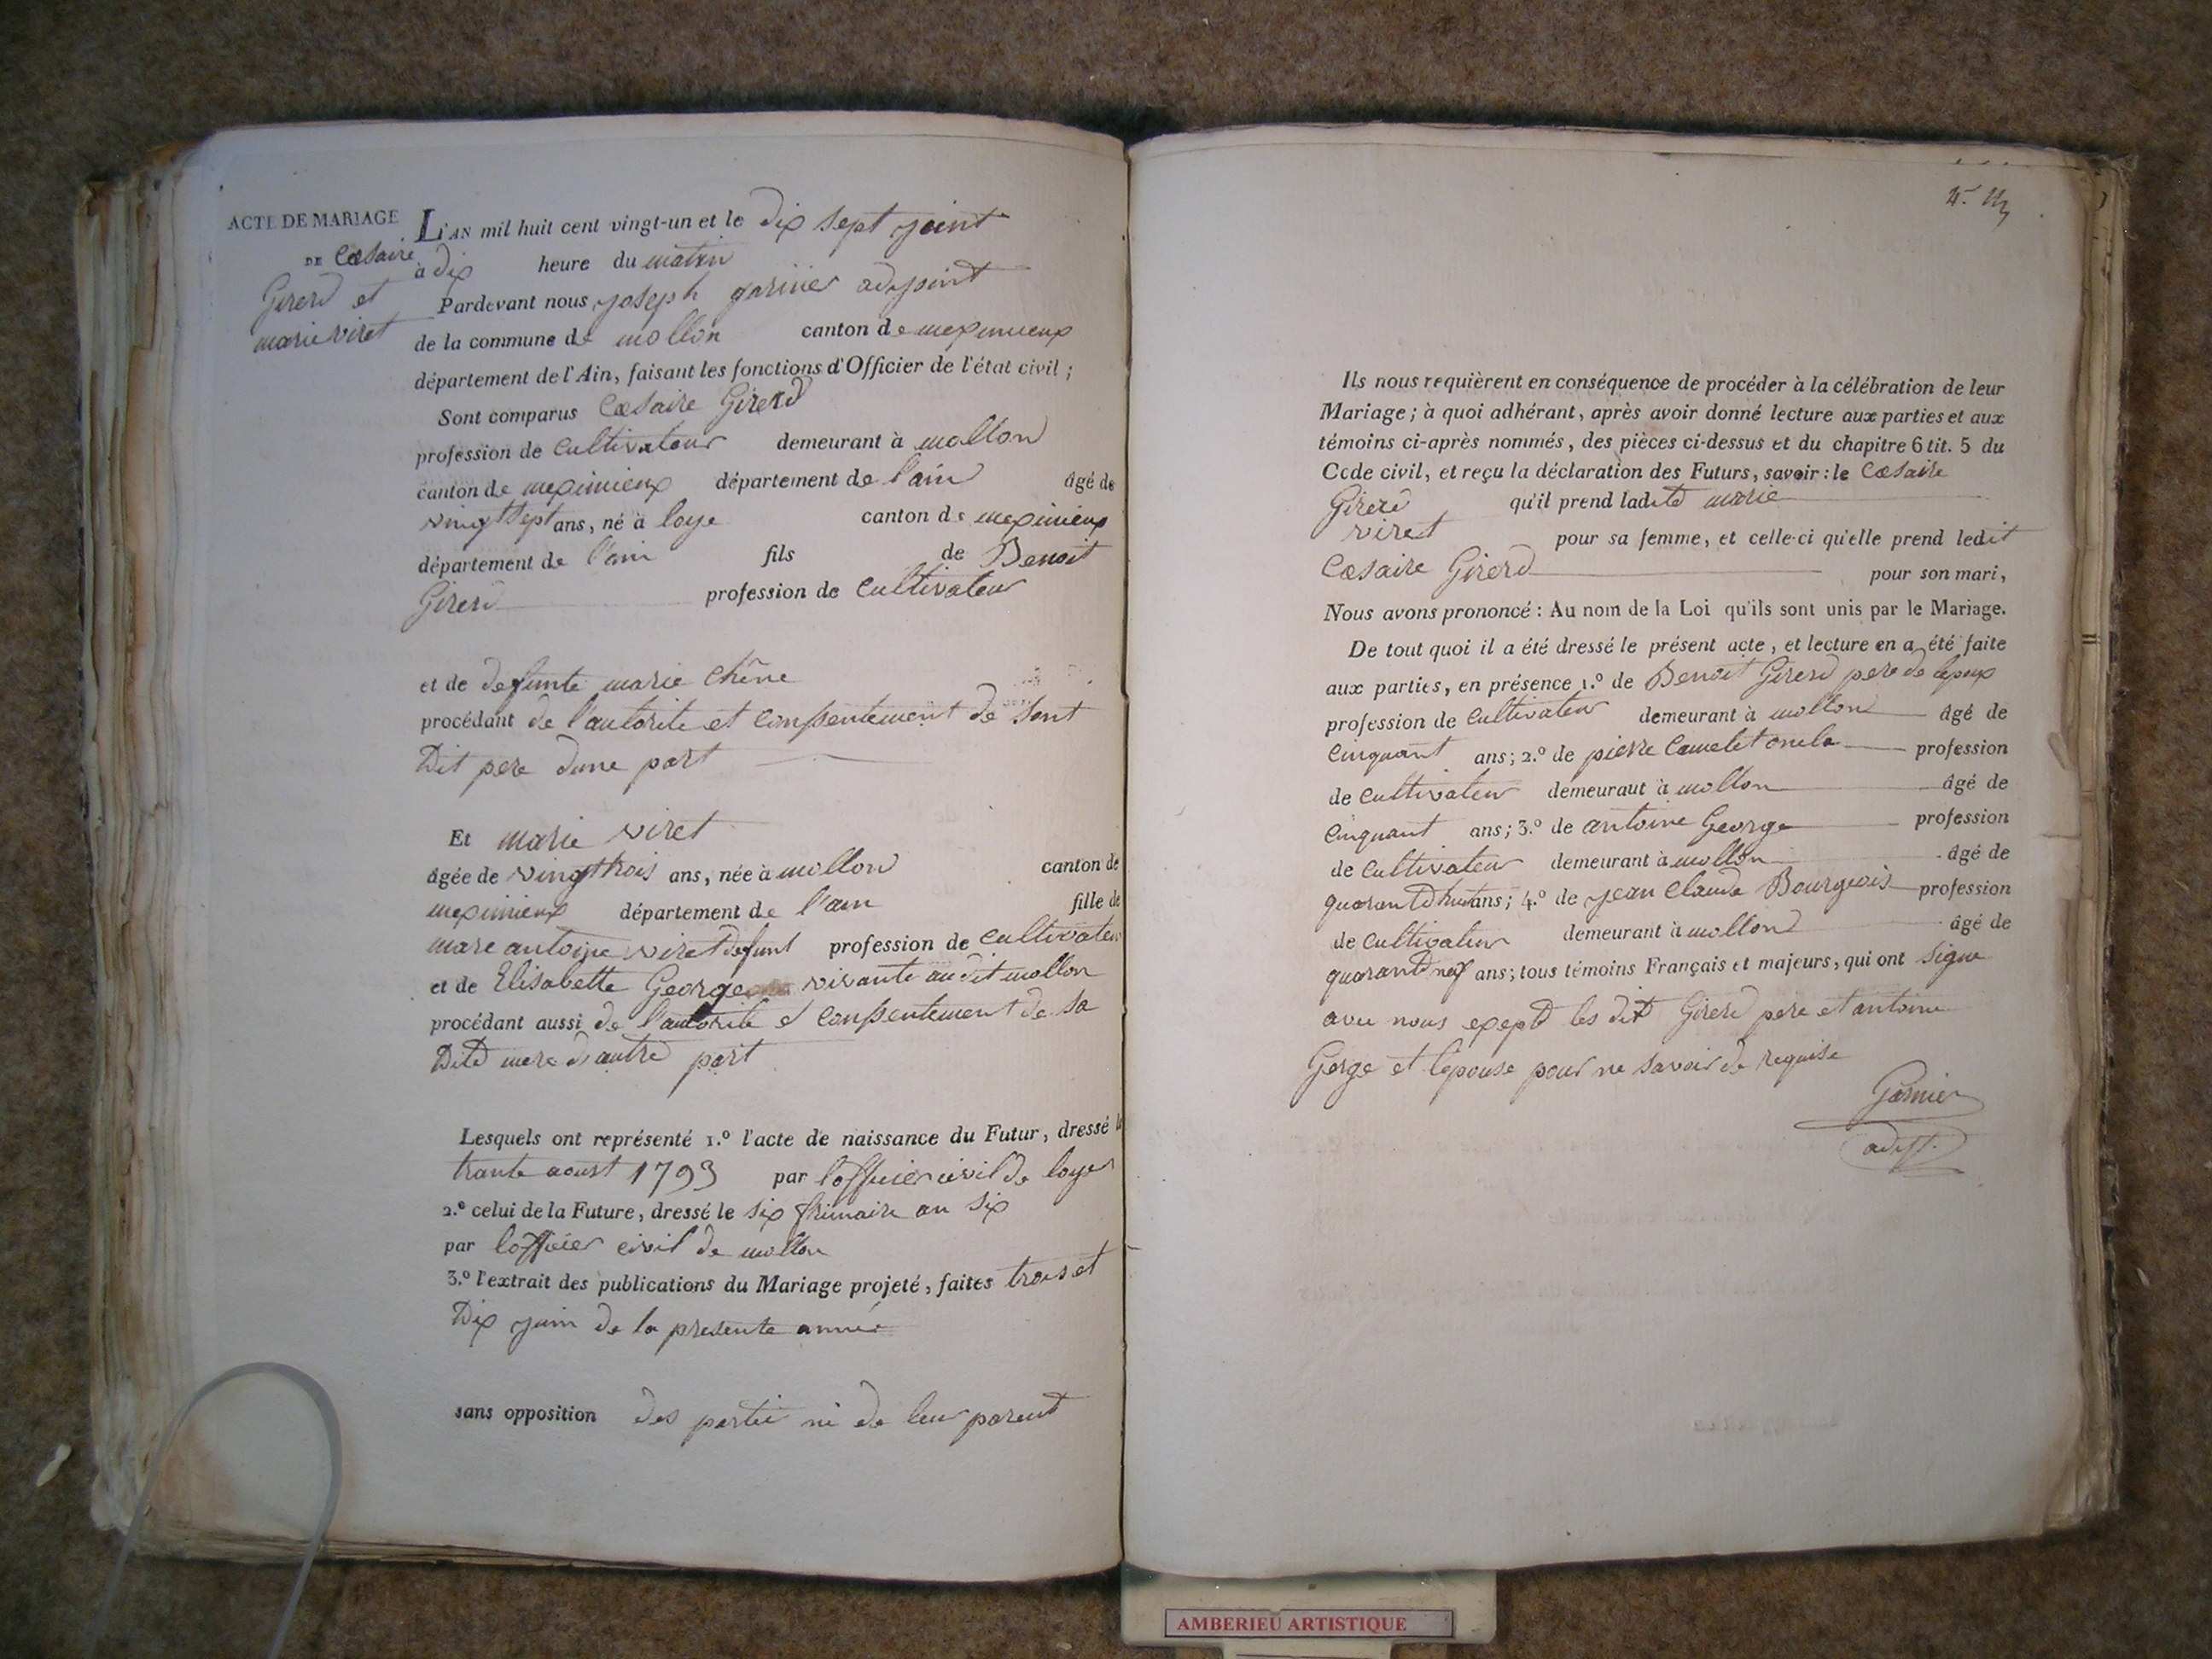 ACTE DE MARIAGE
DE Cæsaire
Girerd et
marie viret
L'AN mil huit cent vingt-un et le dix sept juint
à dix heure du matin
Pardevant nous joseph garnier adjoint
de la commune de mollon canton de meximieux
département de l'Ain, faisant les fonctions d'Officier de l'état civil ;
Sont comparus Cæsaire Girerd
profession de cultivateur demeurant à mollon
canton de meximieux département de l'ain âgé de
vingtsept ans, né à loye canton de meximieux
département de l'ain fils de Benoit
Girerd profession de cultivateur
et de defunte marie chêne
procédant de l'autorite et consentement de sont
Dit pere dune part
Et marie viret
âgée de vingttrois ans, née à mollon canton de
meximieux département de l'ain fille de
marc antoine viret defunt profession de cultivateur
et de Elisabette George vivante audit mollon
procédant aussi de l'autorite et consentement de sa
Dite mere d'autre part
Lesquels ont représenté 1.º l'acte de naissance du Futur, dressé le
trante aoust 1793 par l'officier civil de loye
2.º celui de la Future, dressé le six frimaire an six
par l'officier civil de mollon
3.º l'extrait des publications du Mariage projeté, faites trois et
Dix juin de la presente année
sans opposition des partie ni de leur parent
Ils nous requièrent en conséquence de procéder à la célébration de leur
Mariage ; à quoi adhérant, après avoir donné lecture aux parties et aux
témoins ci-après nommés, des pièces ci-dessus et du chapitre 6 tit. 5 du
Code civil, et reçu la déclaration des Futurs, savoir : le Cæsaire
Girerd qu'il prend ladite marie
viret pour sa femme, et celle-ci qu'elle prend ledit
Cæsaire Girerd pour son mari,
Nous avons prononcé : Au nom de la Loi qu'ils sont unis par le Mariage.
De tout quoi il a été dressé le présent acte, et lecture en a été faite
aux parties, en présence 1.º de Benoit Girerd pere de lepoux
profession de cultivateur demeurant à mollon âgé de
cinquant ans ; 2.º de pierre Camelet oncle profession
de cultivateur demeurant à mollon âgé de
cinquant ans ; 3.º de antoine George profession
de cultivateur demeurant à mollon âgé de
quarantehuit ans ; 4.º de jean claude Bourgeois profession
de cultivateur demeurant à mollond âgé de
quarantneuf ans ; tous témoins Français et majeurs, qui ont signe
avec nousexepte les dit Girerd pere et antoine
Gorge et l'epouse pour ne savoir de requise
Garnier
adjt.
AMBERIEU ARTISTIQUE